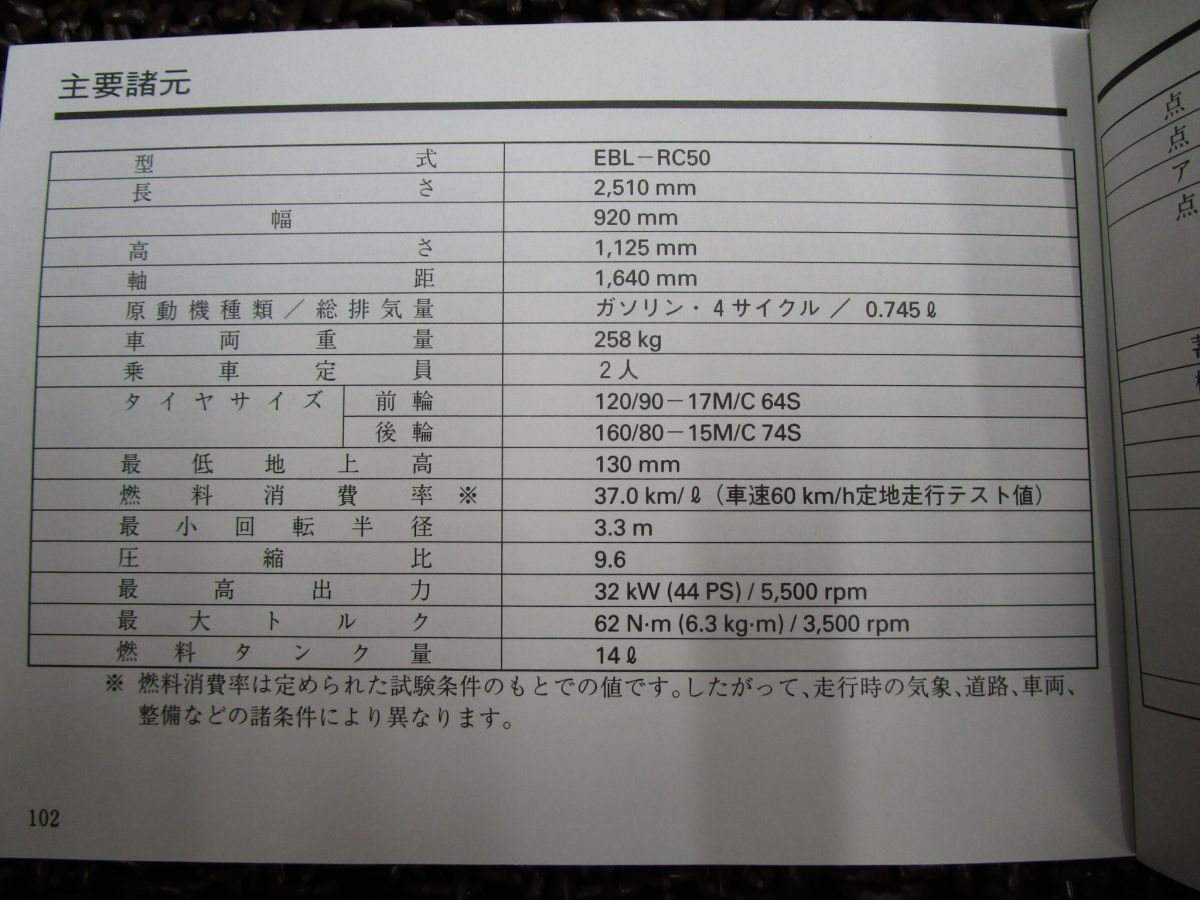 主要諸元
型式 EBL-RC50
長さ 2,510 mm
幅 920 mm
高さ 1,125 mm
軸距 1,640 mm
原動機種類／総排気量 ガソリン・4サイクル／ 0.745ℓ
車両重量 258 kg
乗車定員 2人
タイヤサイズ 前輪 120/90-17M/C 64S
後輪 160/80-15M/C 74S
最低地上高 130 mm
燃料消費率※ 37.0 km/ℓ（車速60 km/h定地走行テスト値）
最小回転半径 3.3 m
圧縮比 9.6
最高出力 32 kW (44 PS) / 5,500 rpm
最大トルク 62 N·m (6.3 kg·m) / 3,500 rpm
燃料タンク量 14ℓ
※ 燃料消費率は定められた試験条件のもとでの値です。したがって、走行時の気象、道路、車両、
整備などの諸条件により異なります。
102
点
点
ア
点